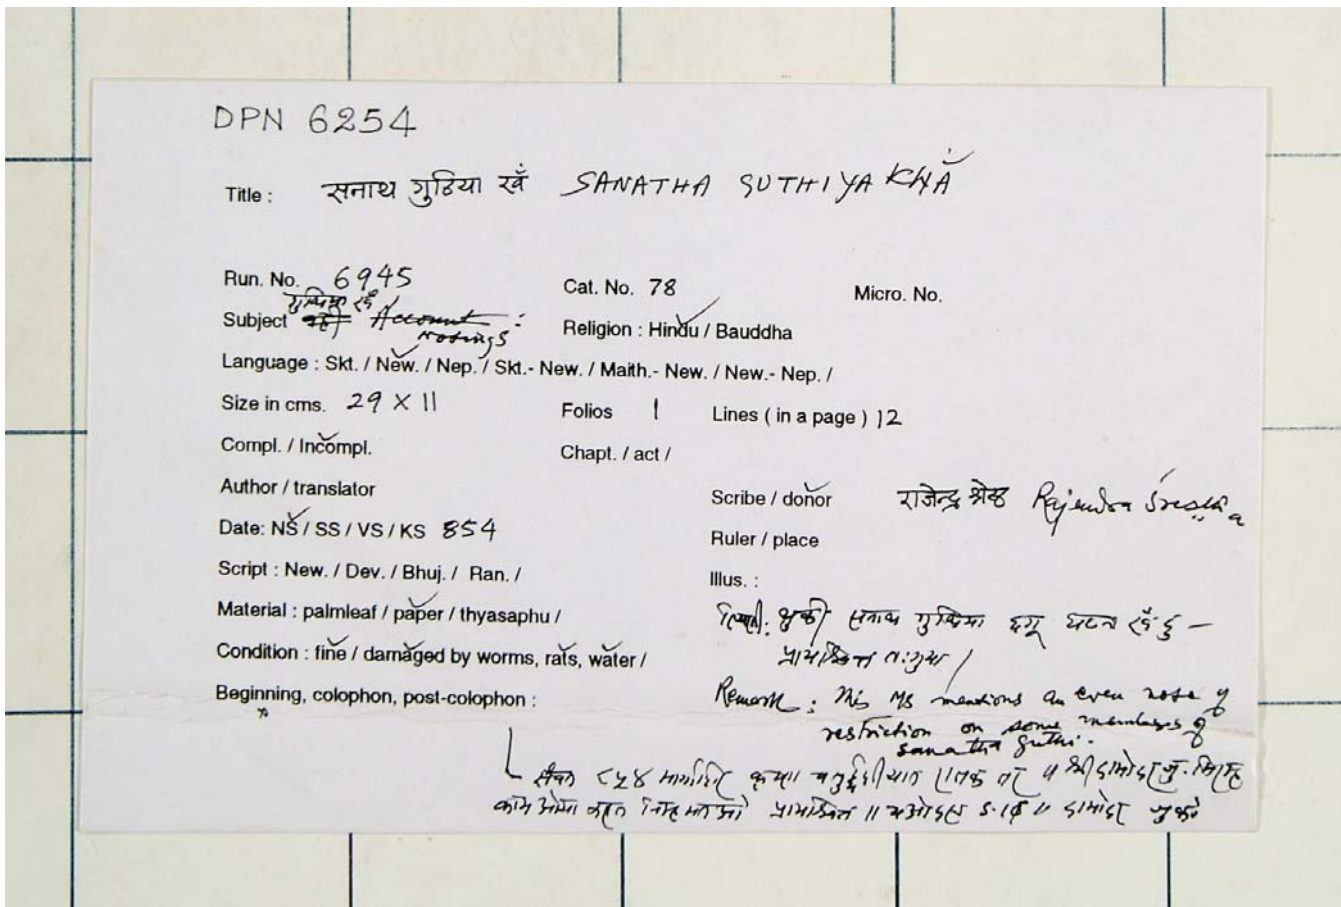 DPN 6254
Title : सनाथ गुठिया खँ SANATHA GUTHIYA KHÃ
Run. No. 6945 Cat. No. 78 Micro. No.
Subject Account : Notings Religion : Hindu / Bauddha
Language : Skt. / New. / Nep. / Skt.- New. / Maith.- New. / New.- Nep. /
Size in cms. 29 X 11 Folios 1 Lines ( in a page ) 12
Compl. / Incompl. Chapt. / act /
Author / translator Scribe / donor राजेन्द्र श्रेष्ठ Rajendra Sresṭha
Date: NS / SS / VS / KS 854 Ruler / place
Script : New. / Dev. / Bhuj. / Ran. / Illus. :
Material : palmleaf / paper / thyasaphu / सनाथ गुथिया
Condition : fine / damaged by worms, rats, water /
Beginning, colophon, post-colophon : Remark : This MS mentions an even note of
restriction on some members of
sanatha guthi.
८५४ कृष्ण
प्रायश्चित ॥